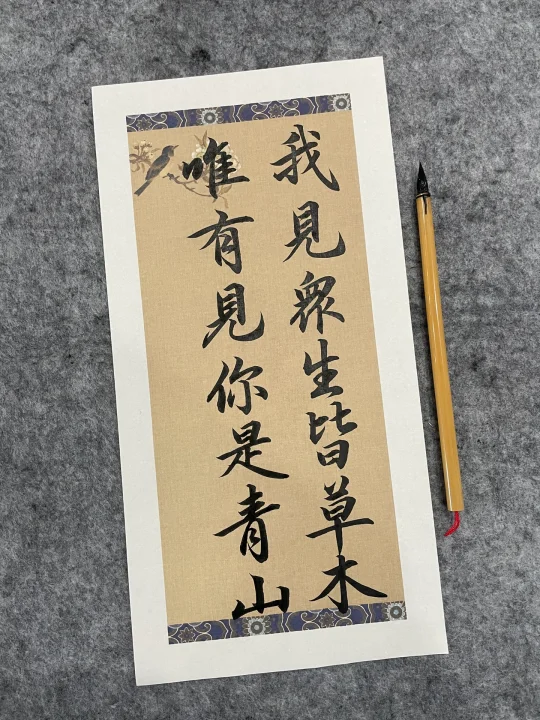 我見衆生皆草木
唯有見你是青山